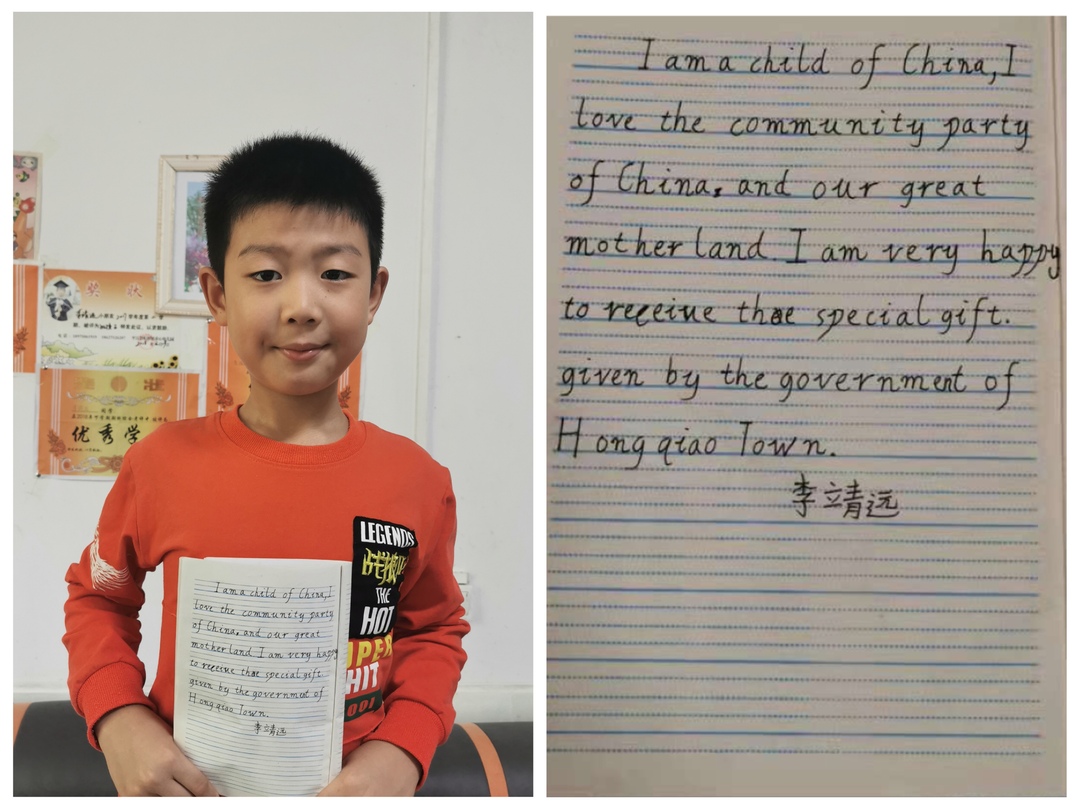 奖状
优秀学
LEGENDS
THE
HOT
HIT
001
I am a child of China, I
love the community party
of China, and our great
mother land I am very happy
to receive thae special gift.
given by the government of
Hongqiao Town.
李立靖远
I am a child of China, I
love the community party
of China, and our great
mother land I am very happy
to receive thae special gift.
given by the government of
Hong qiao Town.
李立靖远